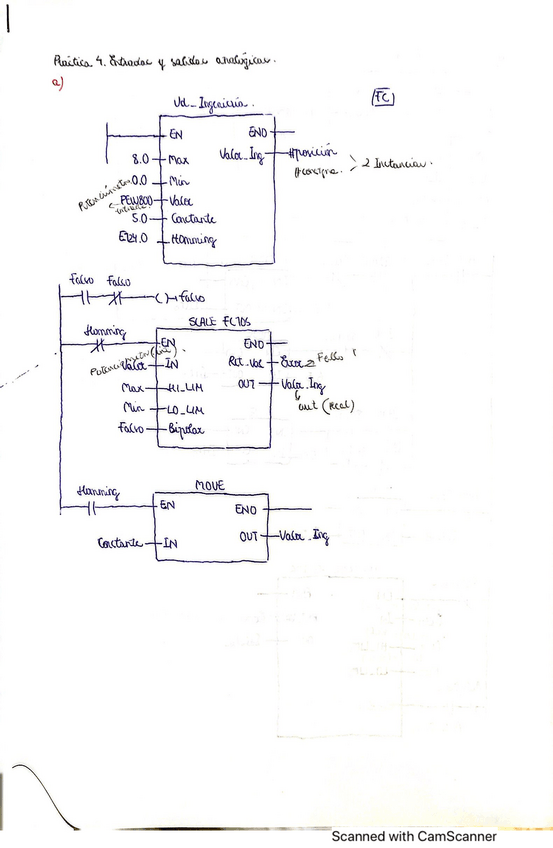 Práctica 4. Entradas y salidas analógicas.
a)
Ud_Ingeniería.
FC
EN
ENO
8.0
Max
Valor_Ing
#posición
#consigna.
2 Instancias.
0.0
Min
Potenciómetro
PEW800
Valor
5.0
Constante
E124.0
Homming
Falso Falso
( )
Falso
SCALE FC105
Homming
EN
ENO
Potenciómetro (int).
Valor
IN
Ret_Val
Error
Falso
Max
HI_LIM
OUT
Valor_Ing
Min
LO_LIM
out (Real)
Falso
Bipolar
MOVE
Homming
EN
ENO
Constante
IN
OUT
Valor_Ing
Scanned with CamScanner